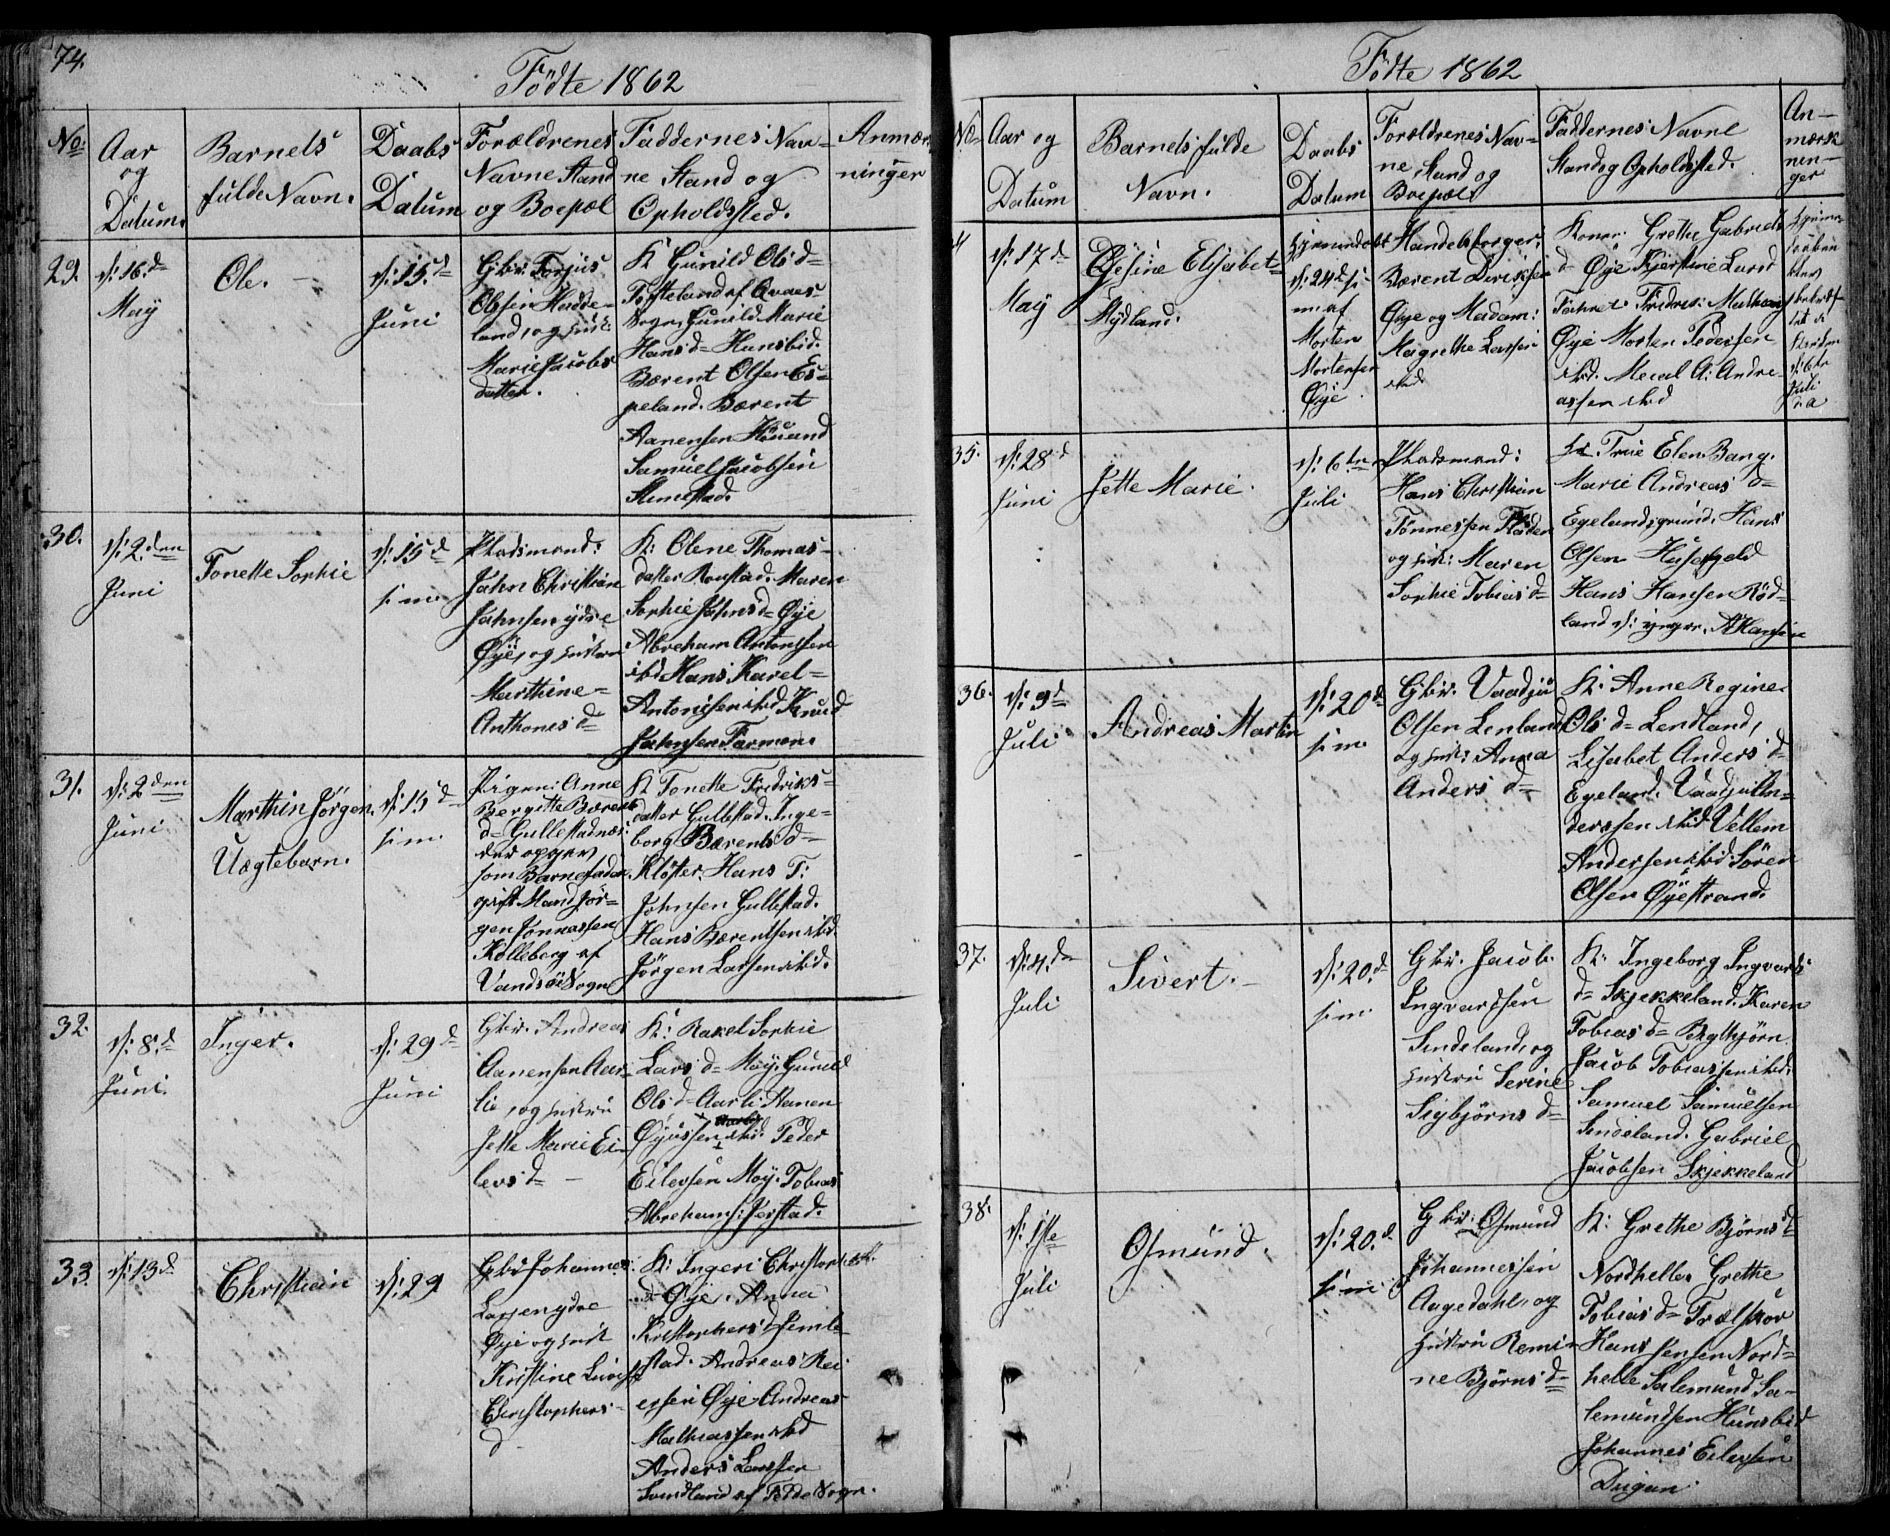 74.
Födte 1862
No:
Aar
og
Datum.
Barnets
fulde Navn.
Daabs
Datum
Forældrenes
Navne Stand
og Boepæl
Faddernes Nav=
ne Stand og
Opholdssted.
Anmær
ninger
29.
d: 16.d=
May
Ole. —
d: 15.d=
Juni
Gbr. Torjus
Olsen Hadde=
land, og Hust
Marie Jacobs
datter.
K Gunild Ols d=
Tofteland af Qvaes=
Sogn, Gunild Marie
Hans d= Hunsbid.
Bærent Olsen Es=
peland. Bærent
Aanensen
Samuel Jacobsen
30.
d: 2.den
Juni
Tonette Sophie
d: 15 d
s: m.
Pladsmand:
Jahn Christian
Jahnsen ydre
Øye, og Hustru
Marthine=
Anthonis d=
K: Olene Thomas=
datter Roustad. Maren
Sophie Jahns d= Øye
Abraham Antonsen
ibd Hans Karel=
Antonisen ibd Knud
Jahnsen
31.
d: 2 den
Juni
Marthin Jörgen.
Uægtebarn.
d: 15 d=
s: m.
Pigen: Anne
Bergitte Bærents
d= Gullestadnæs
der opgav
som Barnefader
gift Mand Jör=
gen Jonnassen
Kolleberg af
Vandsöe Sogn
K Tonette Fredriks=
datter Gullestad. Inge=
borg Bærents d=
Kloster. Hans T:
Johnsen Gullestad.
Hans Bærentsen ibd.
Jörgen Larsen ibd.
32.
d: 8.d
Juni.
Inger.
d: 29 d=
Juni
Gbr. Andreas
Aanensen Aar=
lie, og Hustru
Jette Marie Ei=
levs d= —
K: Rakel Sophie
Lars d= Moy. Gunild
Ols d= Aarli. Aanen
Aarli
Øyüssen ibd. Peder
Eilevsen Moy. Tobias
Abrahams: Jerstad.
33.
d: 13 d.
Christian
d: 29
Gbr Johannes
Larsen ydre
Øye og Hust
Kristine Lovise
Christophers=
d
K: Ingeri Christophers
d= Øye. Anna
Kristophers d=
stad. Andreas Rei
ersen Øye Andreas
Mathiassen ibd
Anders Larssen
Sundland af Fedde Sogn.
Födte 1862
No=
Aar og
Datum
Barnets fulde
Navn.
Daabs
Datum
Forældrenes Nav=
ne, Stand og
Boepæl
Faddernes Navne
Stand og Opholdssted.
An—
mærk
nin—
ger
d: 17 d
May
Gesine Elisabet
Mydland.
Hjemmedøbt
d: 24 d s:
m: af
Morten
Mortensen
Øye.
Handelsborger:
Bærent Dirksen
Øye og Madam:
Magrethe Larsen
ibd
Konen. Grethe Gabriels
d= Øye Kjerstine Lars d
Morten Pedersen
ibd. A: Andre=
assen ibd
Hjemme
daaben
blev
d: 6te
Juli
35.
d: 28 d
Juni
Jette Marie.
d: 6te
Juli
Pladsmand:
Hans Christian
Tönnessen
og Hust: Maren
Sophie Tobias d=
Elen Bang.
Marie Andreas d=
Egelandsgrund. Hans
Olsen
Hans Hansen Röd=
land d: yngre. A Hansen
36.
d: 9d
Juli
Andreas Martin
d: 20 d=
s: m.
Gbr. Vaadju
Olsen Lenland
og Hust: Anna
Anders d=
K: Anne Regine
Ols d= Lendland,
Lisabet Anders d=
Egeland. Vaadju An=
derssen ibd Vellem
Andersen ibd. Sören
Olsen Øyestrand.
37.
d: 4.d=
Juli
Sivert. —
d: 20.d
s: m.
Gbr. Jacob
Ingvardsen
Sindeland, og
Hustru Serine
Sigbjörns d=
K: Ingeborg Ingvards
d= Skjekkeland. Karen
Tobias d= Bythjörn
Jacob Tobiassen ibd.
Samuel Samuelsen
Sindeland. Gabriel
Jacobsen Skjekkeland
38.
d: 1ste
Juli
Osmund.
d: 20.d
s: m
Gbr: Osmund
Johannessen
Aagedahl, og
Hustru Remi=
ne Björns d=
K: Grethe Björns d=
Nordhelle. Grethe
Tobias d= Trælskor
Hans Jensen Nord=
helle Salemund Sa=
lemundsen Hunsbid
Johannes Eilevsen
Dugan.